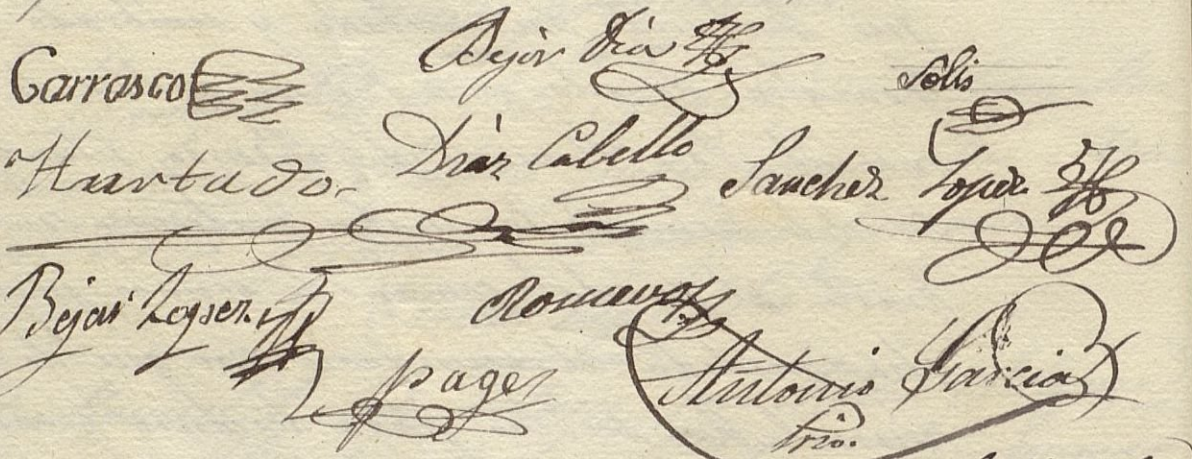 Carrasco Bejar Dia Solis
Hurtado. Diaz Cabello Sanchez Lopez
Bejar Lopez. Romero
pages Antonio Garcia
Srio.